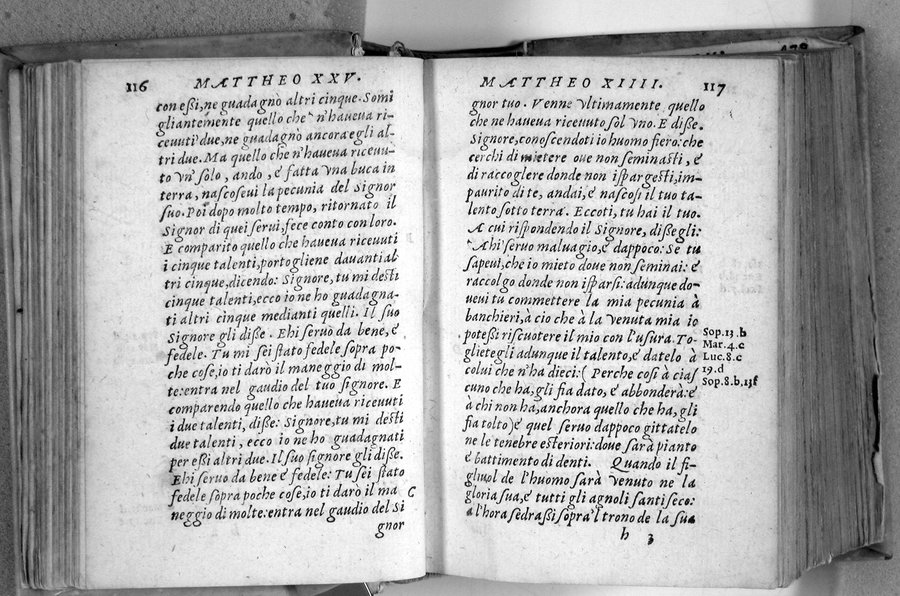 116 MATTHEO XXV.
con eßi, ne guadagnò altri cinque. Somi
gliantemente quello che n'haueua ri-
ceuuti due, ne guadagnò ancora egli al-
tri due. Ma quello che n'haueua riceuu-
to vn' solo, andò, è fatta vna buca in
terra, nascoseui la pecunia del Signor
suo. Poi dopo molto tempo, ritornato il
Signor di quei serui, fece conto con loro.
E comparito quello che haueua riceuuti
i cinque talenti, portogliene dauanti al-
tri cinque, dicendo: Signore, tu mi desti
cinque talenti, ecco io ne ho guadagna-
ti altri cinque medianti quelli. Il suo
Signore gli diße. Ehi seruo da bene, è
fedele. Tu mi sei stato fedele sopra po-
che cose, io ti darò il maneggio di mol-
te: entra nel gaudio del tuo signore. E
comparendo quello che haueua riceuuti
i due talenti, diße: Signore, tu mi desti
due talenti, ecco io ne ho guadagnati
per eßi altri due. Il suo signore gli diße.
Ehi seruo da bene è fedele: Tu sei stato
fedele sopra poche cose, io ti darò il ma C
neggio di molte: entra nel gaudio del Si
gnor
MATTHEO XIIII. 117
gnor tuo. Venne vltimamente quello
che ne haueua riceuuto sol vno. E diße.
Signore, conoscendoti io huomo fiero: che
cerchi di mietere oue non seminasti, è
di raccogliere donde non ispargesti, im-
paurito di te, andai, è nascosi il tuo ta-
lento sotto terra. Eccoti, tu hai il tuo.
A cui rispondendo il Signore, dißegli:
Ahi seruo maluagio, è dappoco: Se tu
sapeui, che io mieto doue non seminai: è
raccolgo donde non isparsi: adunque do-
ueui tu commettere la mia pecunia à
banchieri, à cio che à la venuta mia io
poteßi riscuotere il mio con l'usura. To-
glietegli adunque il talento, è datelo à
colui che n'ha dieci: (Perche così à cias
cuno che ha, gli fia dato, è abbonderà: è
à chi non ha, anchora quello che ha, gli
fia tolto) è quel seruo dappoco gittatelo
ne le tenebre esteriori: doue sarà pianto
è battimento di denti. Quando il fi-
gliuol de l'huomo sarà venuto ne la
gloria sua, è tutti gli agnoli santi seco:
a l'hora sedraßi sopra'l trono de la sua
h 3
Sop.13.b
Mar.4.c
Luc.8.c
19.d
Sop.8.b,13f